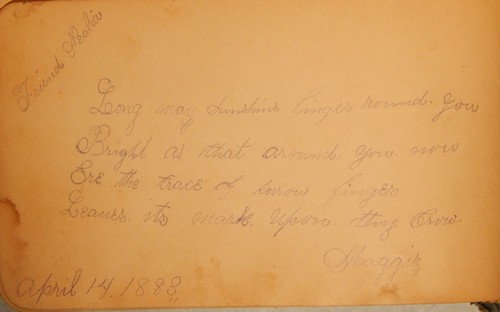 Friend
Long may sunshine linger round you
Bright as that around you now
Ere the trace of sorrow finger
Leaves its mark upon thy brow
Maggie
April 14. 1883